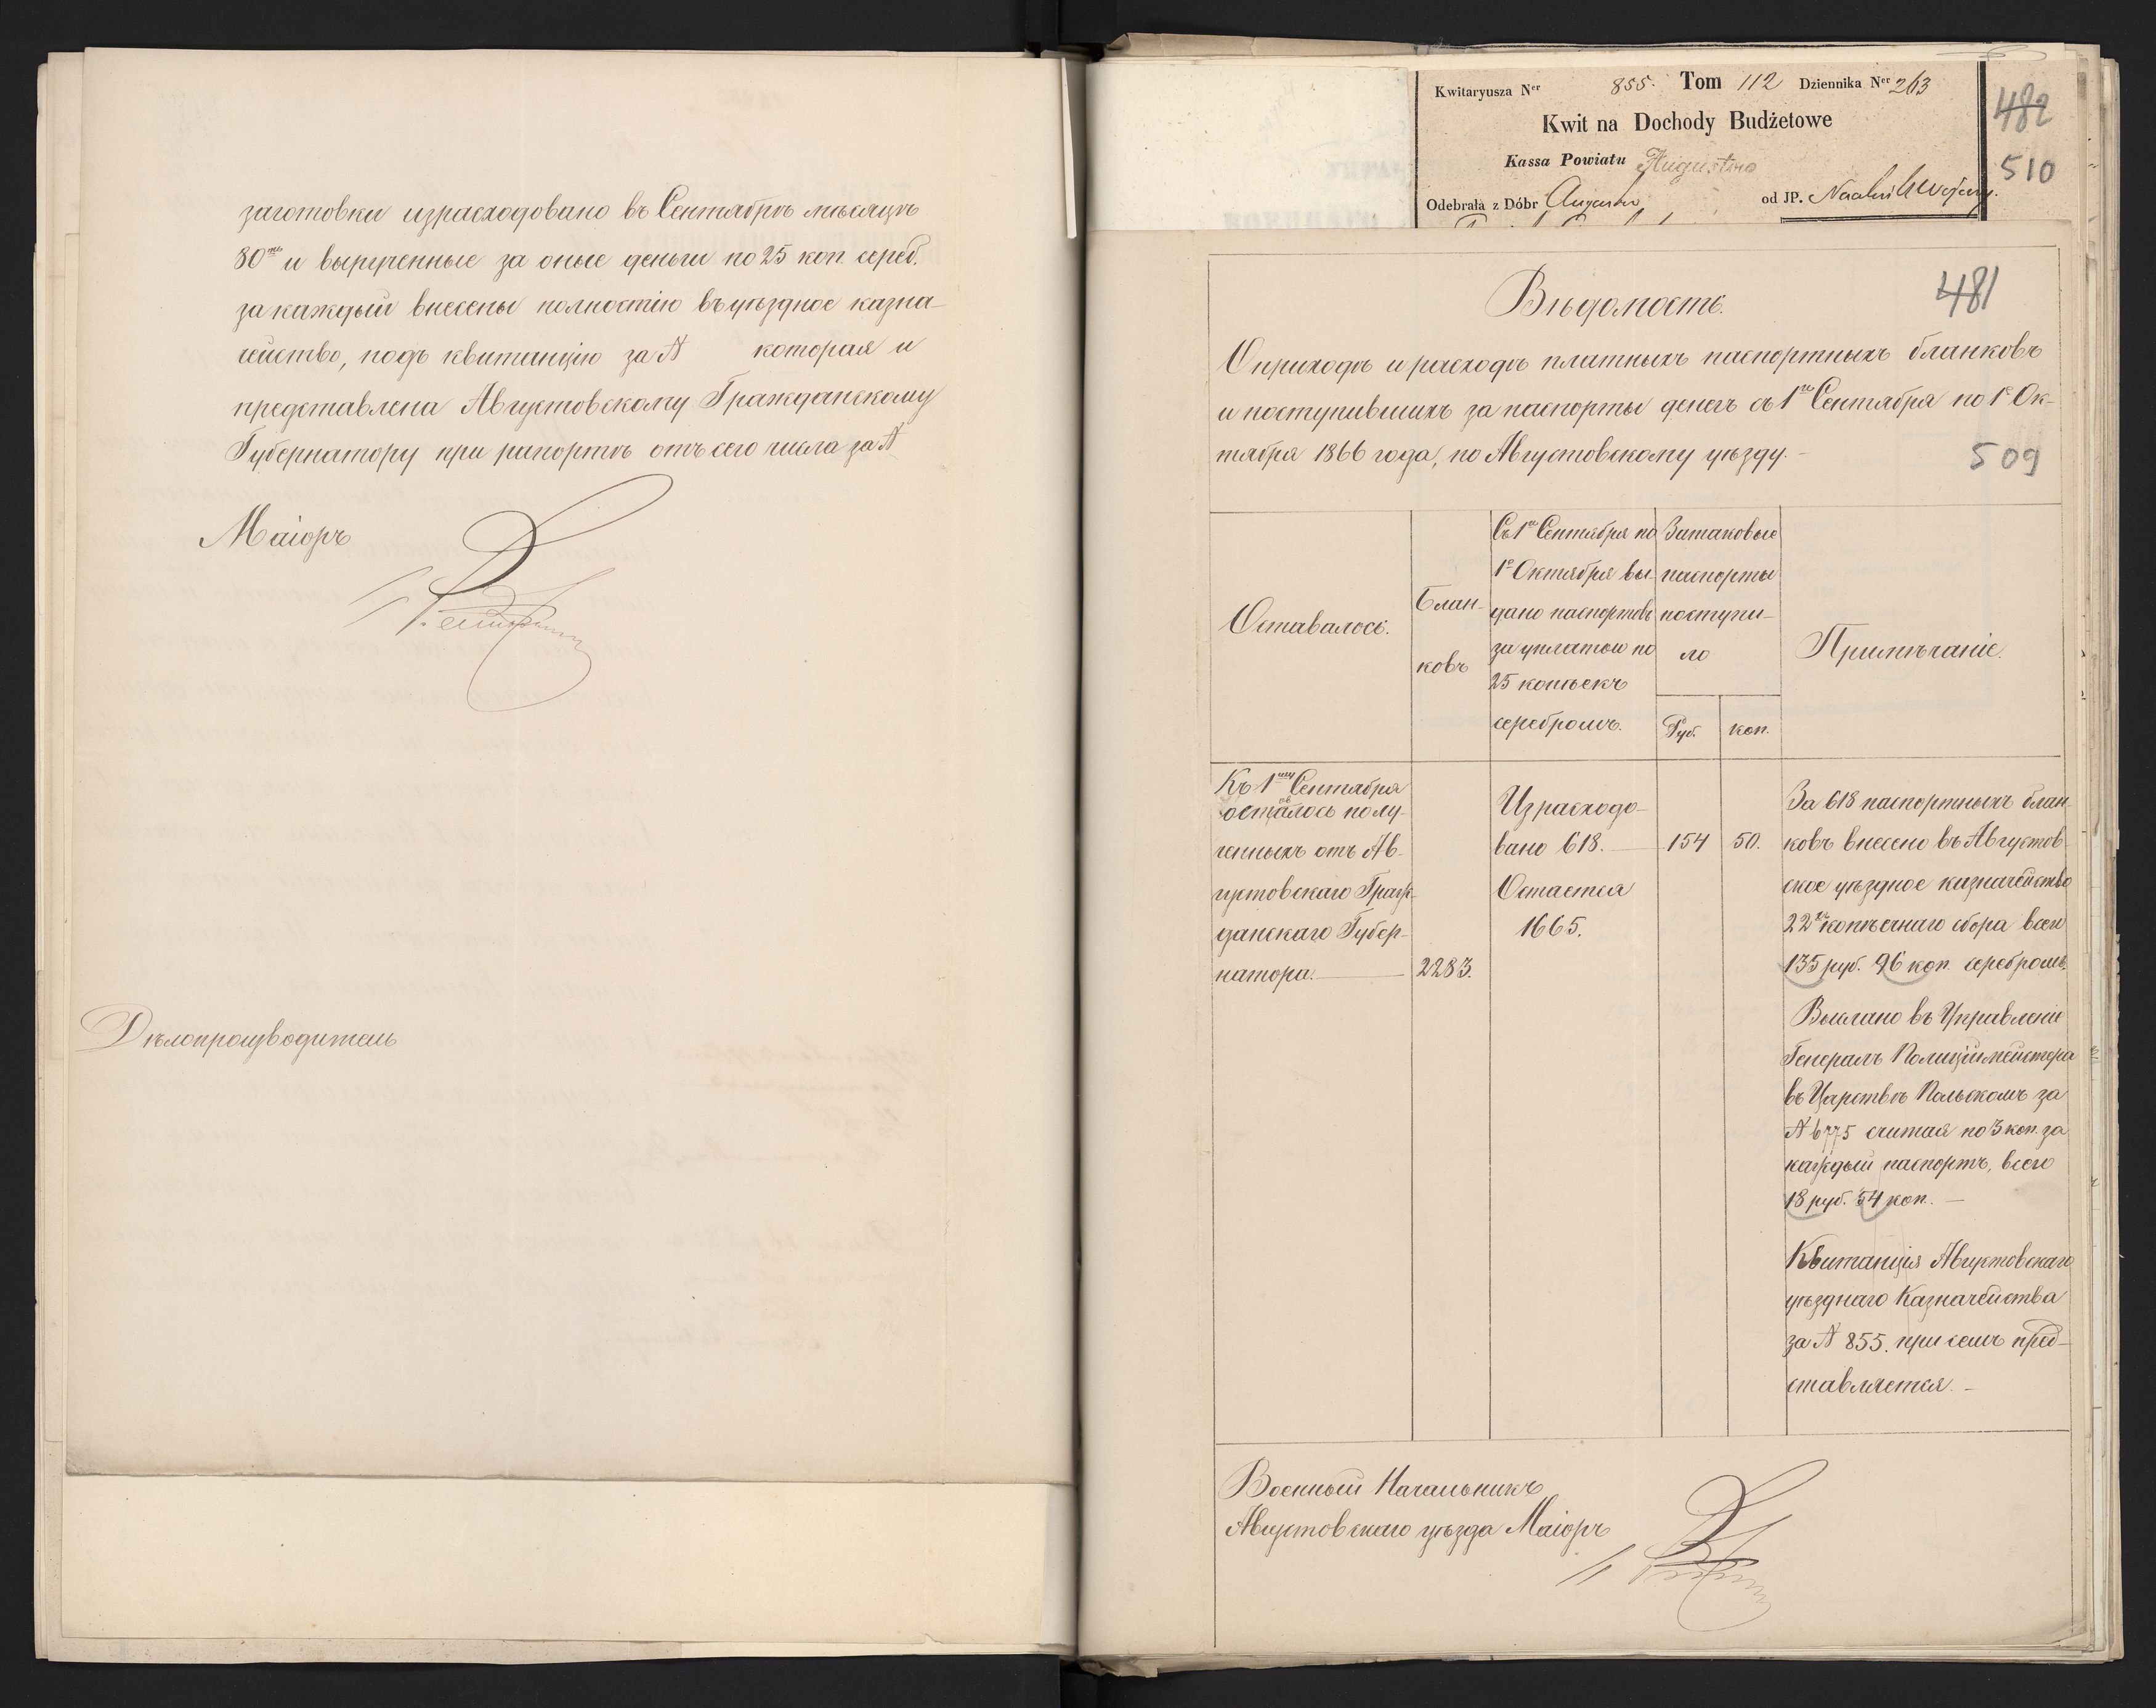 заготовки израсходовано въ Сентябрѣ мѣсяцѣ
80ть и вырученные за оные деньги по 25 коп. сереб.
за каждый внесены полностію въ уѣздное казна-
чейство, подъ квитанцію за № которая и
представлена Августовскому Гражданскому
Губернатору при рапортѣ отъ сего числа за №
Маіоръ
Дѣлопроизводитель
Kwitaryusza Ner 855. Tom 112 Dziennika Ner 263
Kwit na Dochody Budżetowe
Kassa Powiatu
Odebrała z Dóbr od JP.
482
510
Вѣдомость.
481
О приходѣ и расходѣ платныхъ паспортныхъ бланковъ
и поступившихъ за паспорты денегъ съ 1го Сентября по 1е Ок-
тября 1866 года, по Августовскому уѣзду.
509
Оставалось.
Блан-
ковъ
Съ 1го Сентября по
1е Октября вы-
дано паспортовъ
за уплатою по
25 копѣекъ
серебромъ.
За таковые
паспорты
поступи-
ло
Руб. коп.
Примѣчаніе.
Къ 1му Сентября
осталось полу-
ченныхъ отъ Ав-
густовскаго Граж-
данскаго Губер-
натора. 2283.
Израсходо-
вано 618. 154 50.
Остается
1665.
За 618 паспортныхъ блан-
ковъ внесено въ Августов-
ское уѣздное казначейство
22хъ копѣечнаго сбора всего
135 руб. 96 коп. серебромъ.
Выслано въ Управленіе
Генералъ Полиціймейстера
въ Царствѣ Польскомъ за
№ 6775 считая по 3 коп. за
каждый паспортъ, всего
18 руб. 54 коп. —
Квитанція Августовскаго
уѣзднаго Казначейства
за № 855. при семъ пред-
ставляется. —
Военный Начальникъ
Августовскаго уѣзда Маіоръ